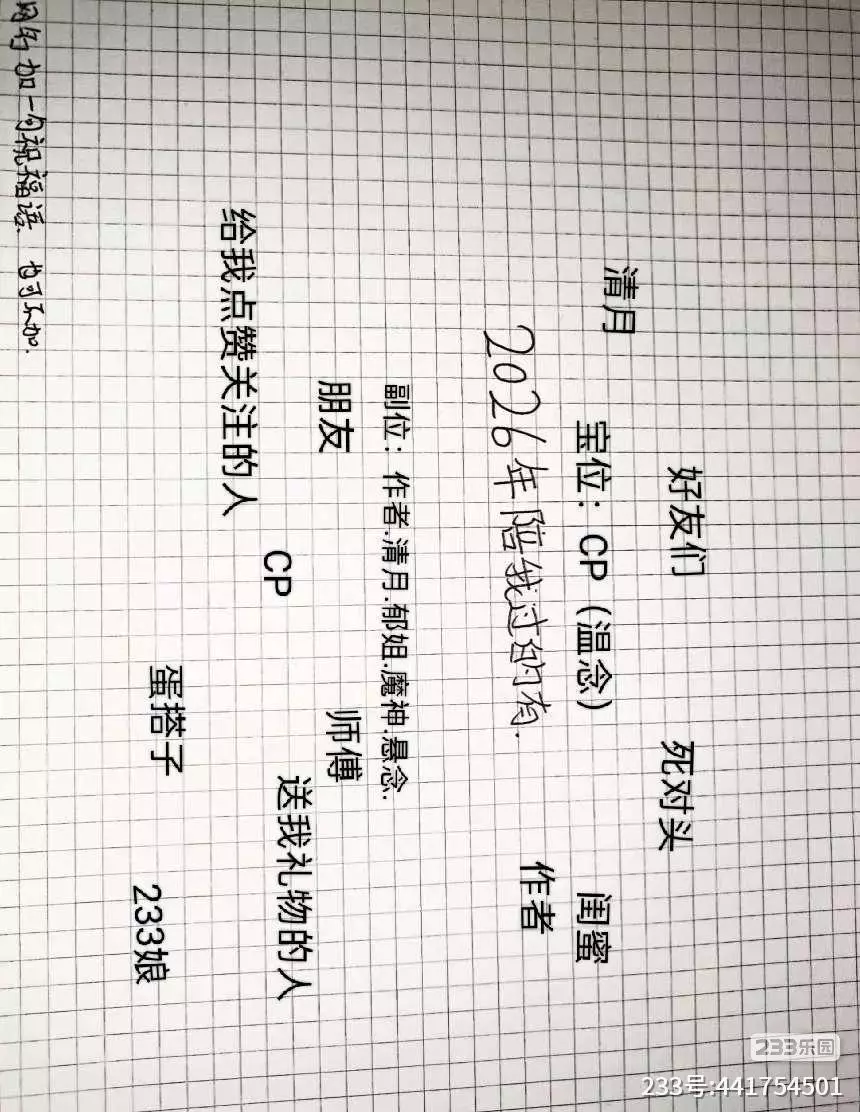 好友们
死对头
清月
宝位：CP（温念）
闺蜜
2026年陪我过的有.
作者
副位：作者.清月.郁姐.魔神.悬念.
朋友
师傅
CP
送我礼物的人
给我点赞关注的人
蛋搭子
233娘
网名加一句祝福语. 也可不加.
233乐园
233号:441754501